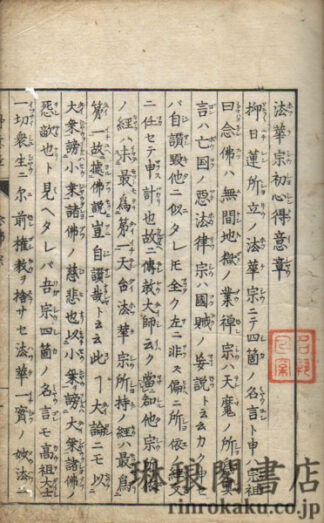 法華宗初心得意章
抑日蓮所立ノ法華宗ニテ四箇ノ名言ト申ハ宗祖
曰念佛ハ無間地極ノ業禅宗ハ天魔ノ所
言ハ亡国ノ悪法律宗ハ國賊ノ妄説ト云云カク申セ
バ自讃毀他ニ似タレモ全ク左ニ非ス偏ニ所依ノ経文
ニ任セテ申ス計也故ニ傳教大師云ク當知他宗所依
ノ経ハ未最為第一天台法華宗所持経ハ最為
第一故據佛説豈自讃哉ト云云此一大論ニモ以
大乗謗小乗諸佛ノ慈悲也以小乗謗大乗諸佛
怨敵也ト見ヘタレバ吾宗四箇ノ名言モ高祖大士
一切衆生ニ尓前権教ヲ捨サセ法華一實ノ妙法ニ
琳琅閣書店
rinrokaku.co.jp